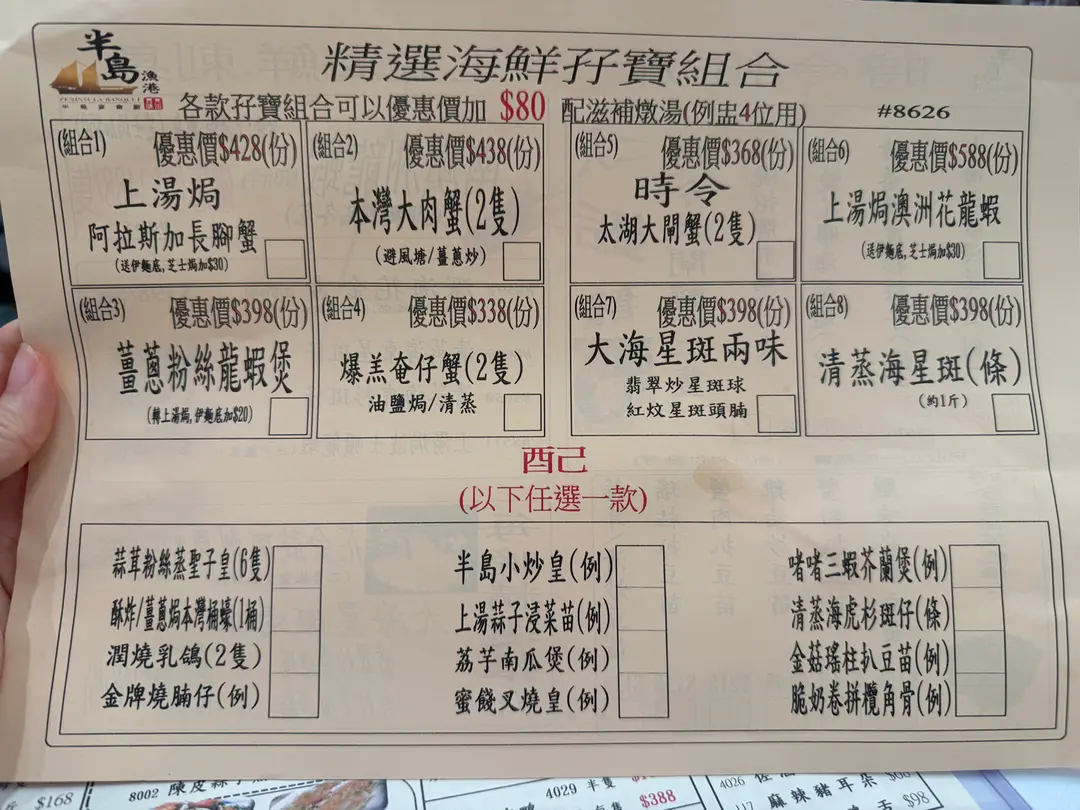 半島
漁港
PENINSULA BANQUET
精選海鮮孖寶組合
各款孖寶組合可以優惠價加 $80 配滋補燉湯(例盅4位用)
#8626
(組合1) 優惠價$428(份)
上湯焗
阿拉斯加長腳蟹
(送伊麵底,芝士焗加$30)
(組合2) 優惠價$438(份)
本灣大肉蟹(2隻)
(避風塘/薑蔥炒)
(組合5) 優惠價$368(份)
時令
太湖大閘蟹(2隻)
(組合6) 優惠價$588(份)
上湯焗澳洲花龍蝦
(送伊麵底,芝士焗加$30)
(組合3) 優惠價$398(份)
薑蔥粉絲龍蝦煲
(轉上湯焗,伊麵底加$20)
(組合4) 優惠價$338(份)
爆羔奄仔蟹(2隻)
油鹽焗/清蒸
(組合7) 優惠價$398(份)
大海星斑兩味
翡翠炒星斑球
紅炆星斑頭腩
(組合8) 優惠價$398(份)
清蒸海星斑(條)
(約1斤)
酉己
(以下任選一款)
蒜茸粉絲蒸聖子皇(6隻)
半島小炒皇(例)
啫啫三蝦芥蘭煲(例)
酥炸/薑蔥焗本灣桶蠔(1桶)
上湯蒜子浸菜苗(例)
清蒸海虎杉斑仔(條)
潤燒乳鴿(2隻)
荔芋南瓜煲(例)
金菇瑤柱扒豆苗(例)
金牌燒腩仔(例)
蜜餞叉燒皇(例)
脆奶卷拼欖角骨(例)
$168
8002
4029 半隻
$388
4026
麻辣豬耳朵
$98